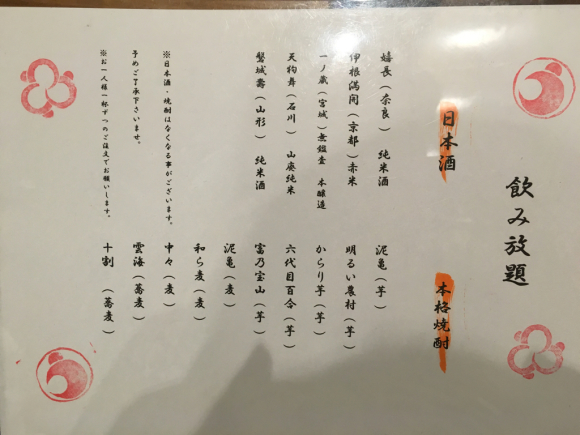 飲み放題
日本酒
嬉長（奈良） 純米酒
伊根満開（京都）赤米
一ノ蔵（宮城）無鑑査 本醸造
天狗舞（石川） 山廃純米
磐城壽（山形） 純米酒
本格焼酎
泥亀（芋）
明るい農村（芋）
からり芋（芋）
六代目百合（芋）
富乃宝山（芋）
泥亀（麦）
和ら麦（麦）
中々（麦）
雲海（蕎麦）
十割 （蕎麦）
※日本酒・焼酎はなくなる事がございます。
予めご了承下さいませ。
※お一人様一杯ずつのご注文でお願いします。